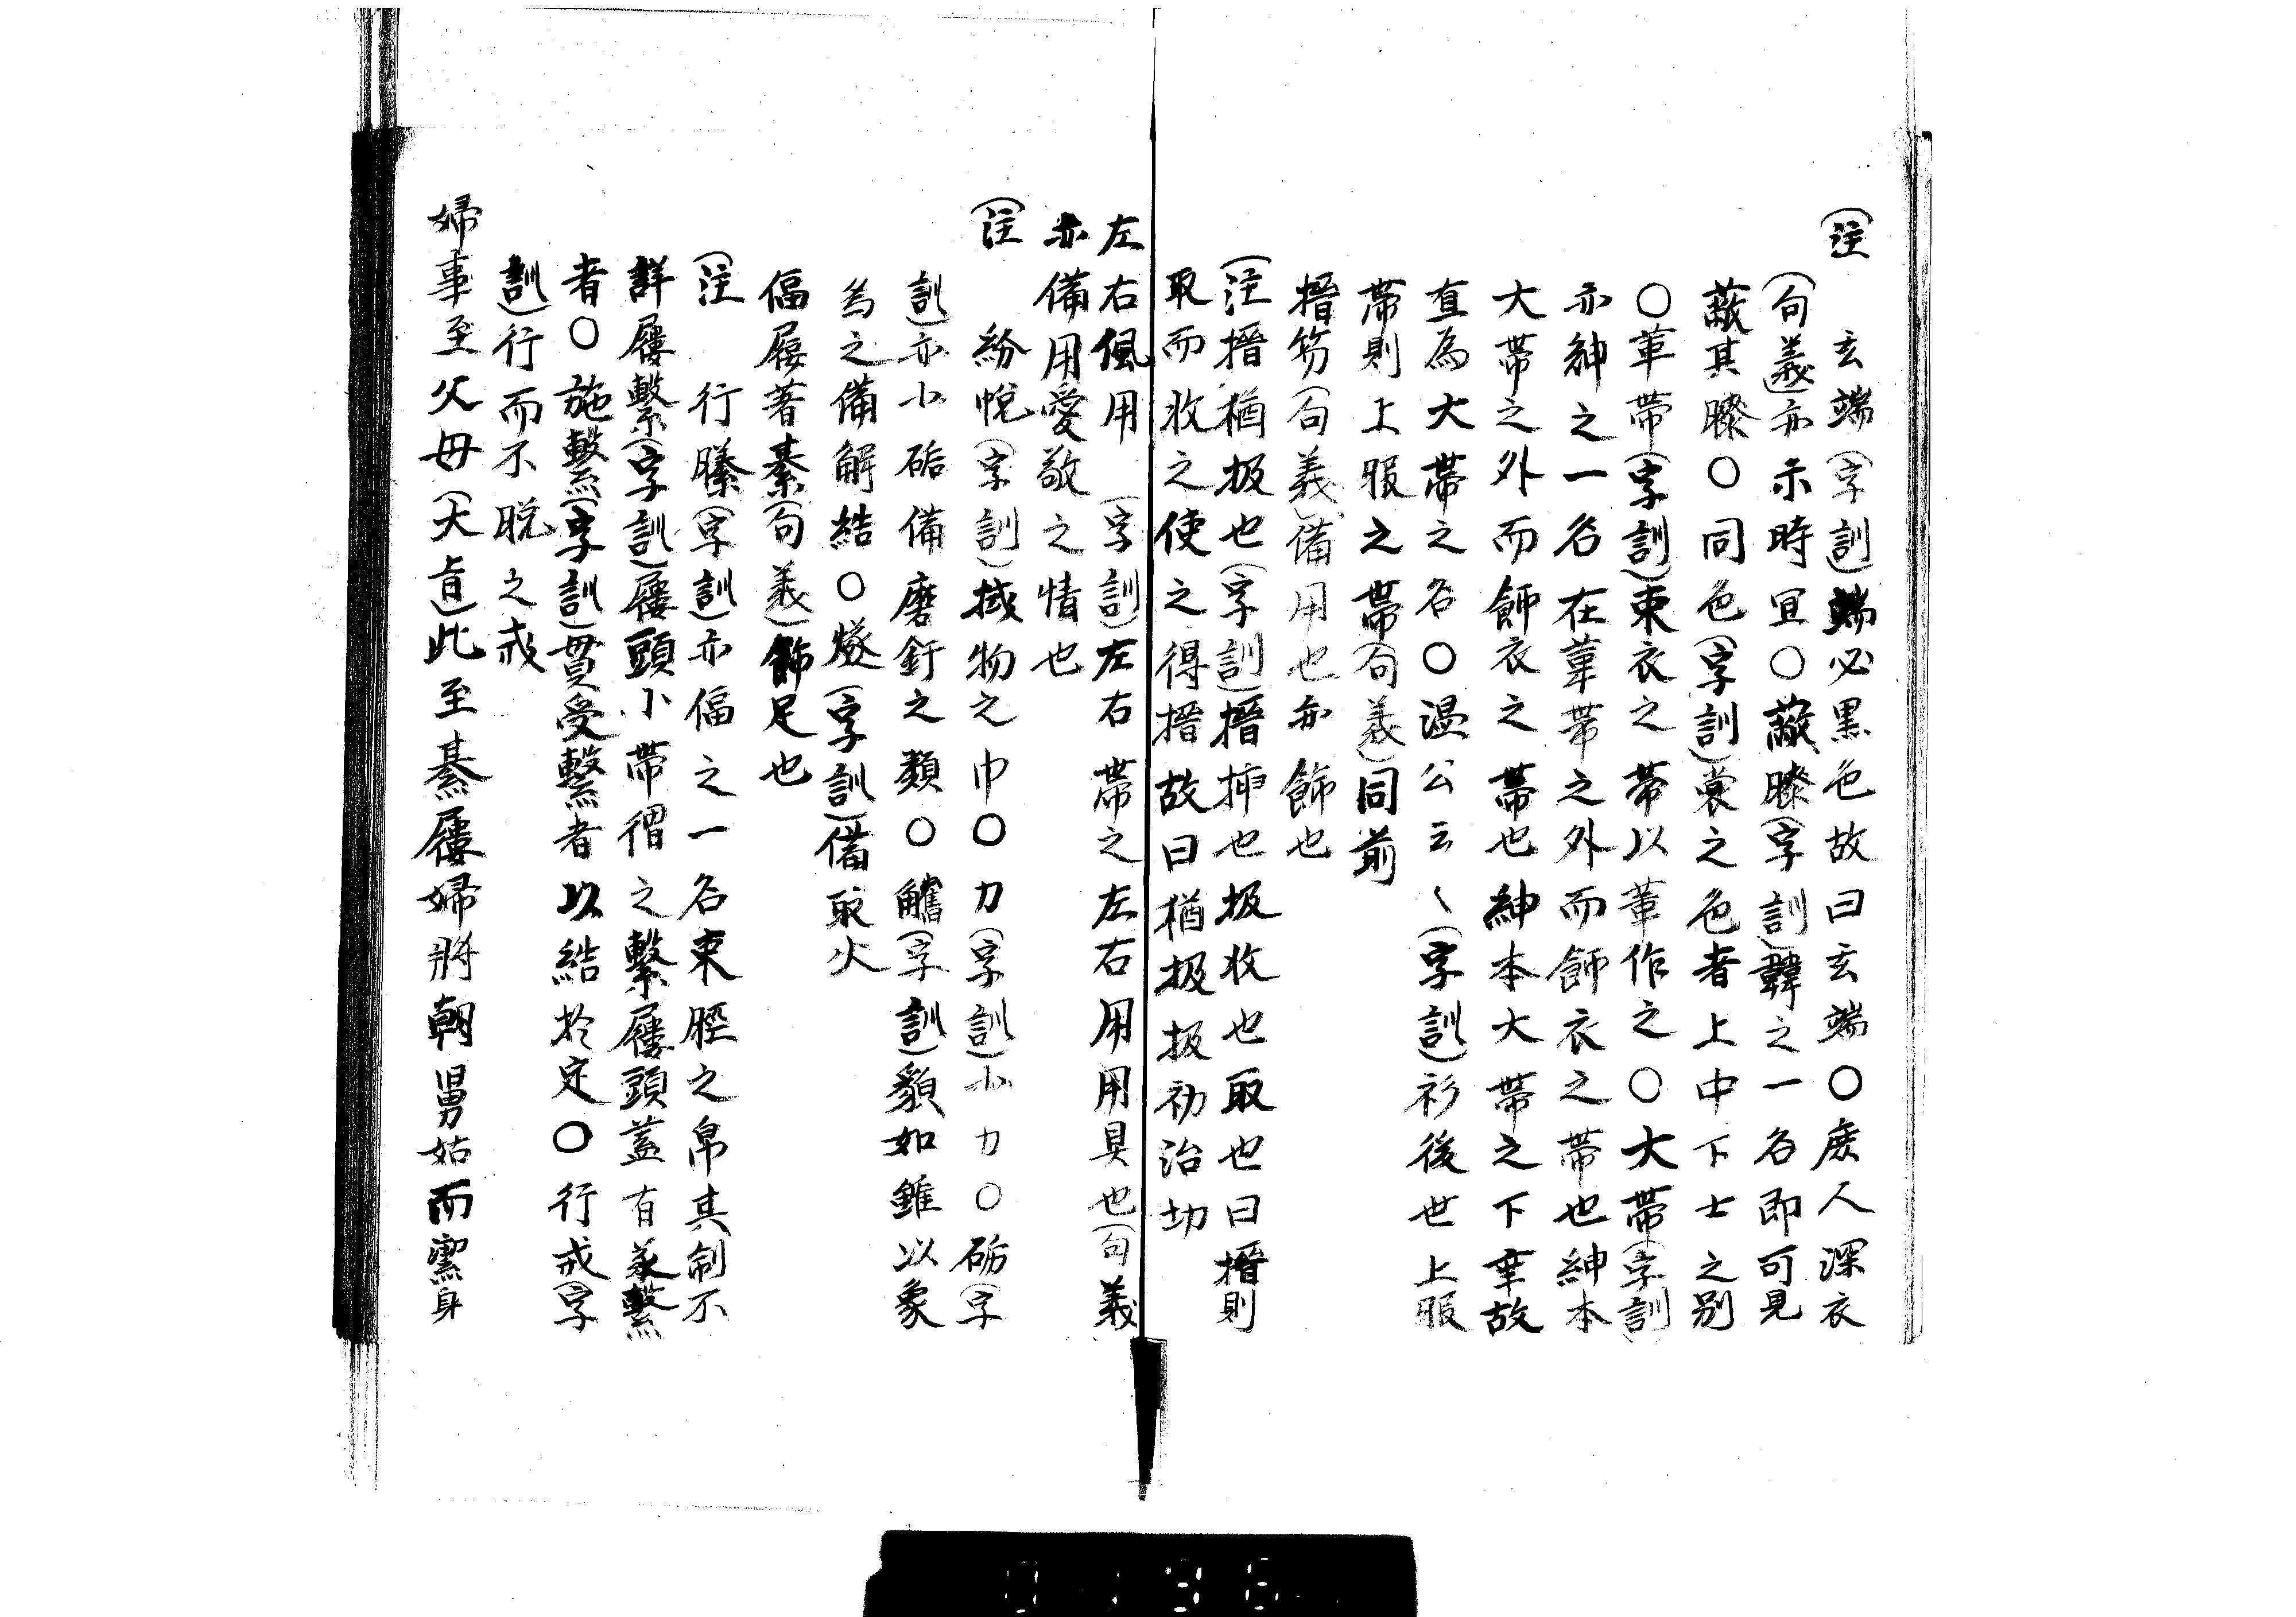 (注) 玄端(字訓)端必黒色故曰玄端○庻人深衣
(句義)亦示時宜○蔽膝(字訓)韠之一名即可見
蔽其膝○同色(字訓)裳之色者上中下士之別
○革帯(字訓)束衣之帯以革作之○大帯(字訓)
亦紳之一名在革帯之外而飾衣之帯也紳本
大帯之外而飾衣之帯也紳本大帯之下垂故
直為大帯之名○温公云〻(字訓)衫後世上服
帯則上服之帯(句義)同前
搢笏(句義)備用也亦飾也
(注搢猶扱也(字訓)搢挿也扱收也取也曰搢則
取而收之使之得搢故曰猶扱扱初洽切
左右佩用(字訓)左右帯之左右用用具也(句義
亦備用愛敬之情也
(注 紛帨(字訓)拭物之巾○刀(字訓)小刀○砺(字
訓)亦小砺備磨釪之類○觿(字訓)貌如錐以象
為之備解結○燧(字訓)備取火
偪屨著綦(句義)飾足也
(注 行縢(字訓)亦偪之一名束脛之帛其制不
詳屨繋(字訓)屨頭小帯謂之繋屨頭蓋有系繋
者○施繋(字訓)貫受繋者以結於定○行戒(字
訓)行而不脱之戒
婦事至父母(大㫖)此至綦屨婦將朝舅姑而潔身